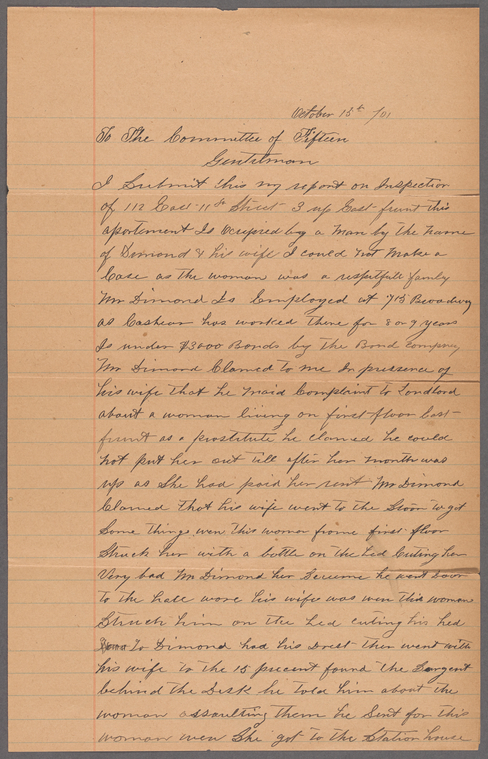 October 15th /01
To The Committee of Fifteen
Gentelman
I Submit this my report on Inspection
of 112 East 11th Street 3 up East front this
apartement Is Ocupied by a Man by the Name
of Dimond & his wife I could not Make a
Case as the woman was a respitfull family
Mr Dimond Is Employed at 715 Broadway
as Cashear has worked there for 8 or 9 years
Is under $3000 Bonds by the Bond company
Mr Dimond Clamed to me In presence of
his wife that he maid Complaint to Londlord
about a woman living on first floor East
front as a prostitute he clamed he could
not put her out till after her month was
up as She had paid her rent Mr Dimond
Clamed that his wife went to the Stoor to get
Some things wen this woman frome first floor
Struck her with a bottle on the hed Cuting her
Very bad Mr Dimond her he went Down
to the hall were his wife was wen this woman
Struck him on the hed cuting his hed
to Dimond had his Drest then went with
his wife to the 15 precent found the Sargent
behind the Desk he Told him about the
woman assaulting them he Sent for this
woman wen She got to the Station house